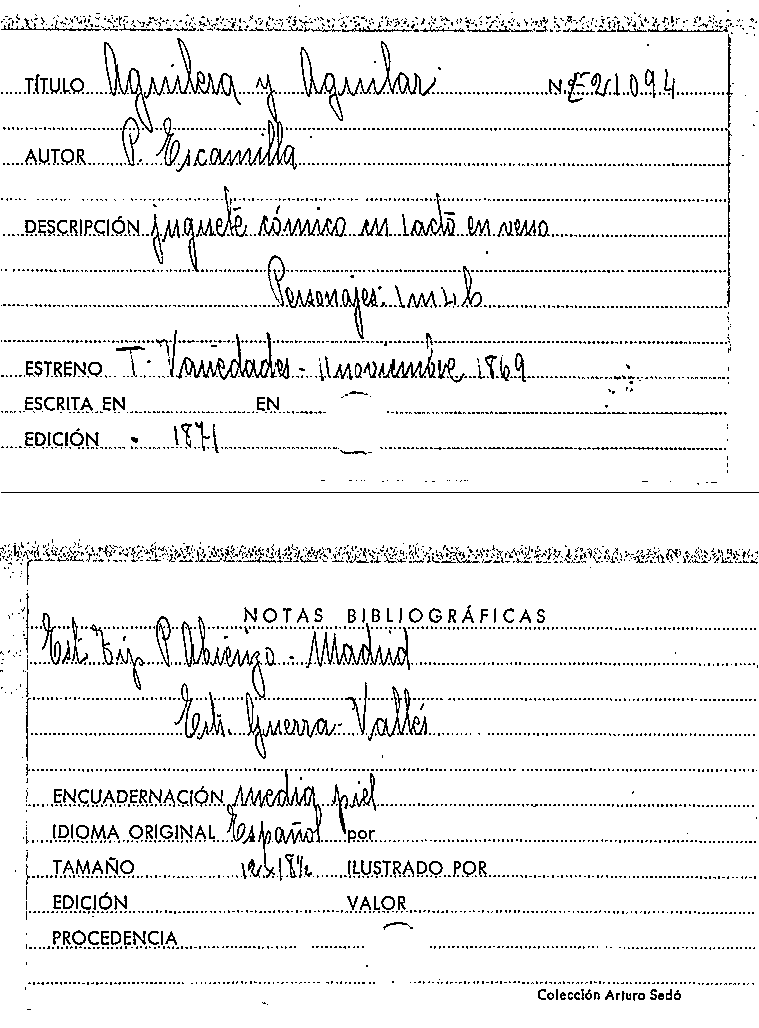 TÍTULO Aguilera y Aguilar N.º E-21094
AUTOR P. Escamilla
DESCRIPCIÓN juguete cómico en 1 acto en verso
Personajes: 1 m 4 h
ESTRENO T. Variedades - 11 noviembre 1869
ESCRITA EN EN
EDICIÓN 1871
NOTAS BIBLIOGRÁFICAS
Est. Tip. P. Abienzo - Madrid
Guerra - Vallés
ENCUADERNACIÓN media piel
IDIOMA ORIGINAL Español por
TAMAÑO 12x18½ ILUSTRADO POR
EDICIÓN VALOR
PROCEDENCIA
Colección Arturo Sedó